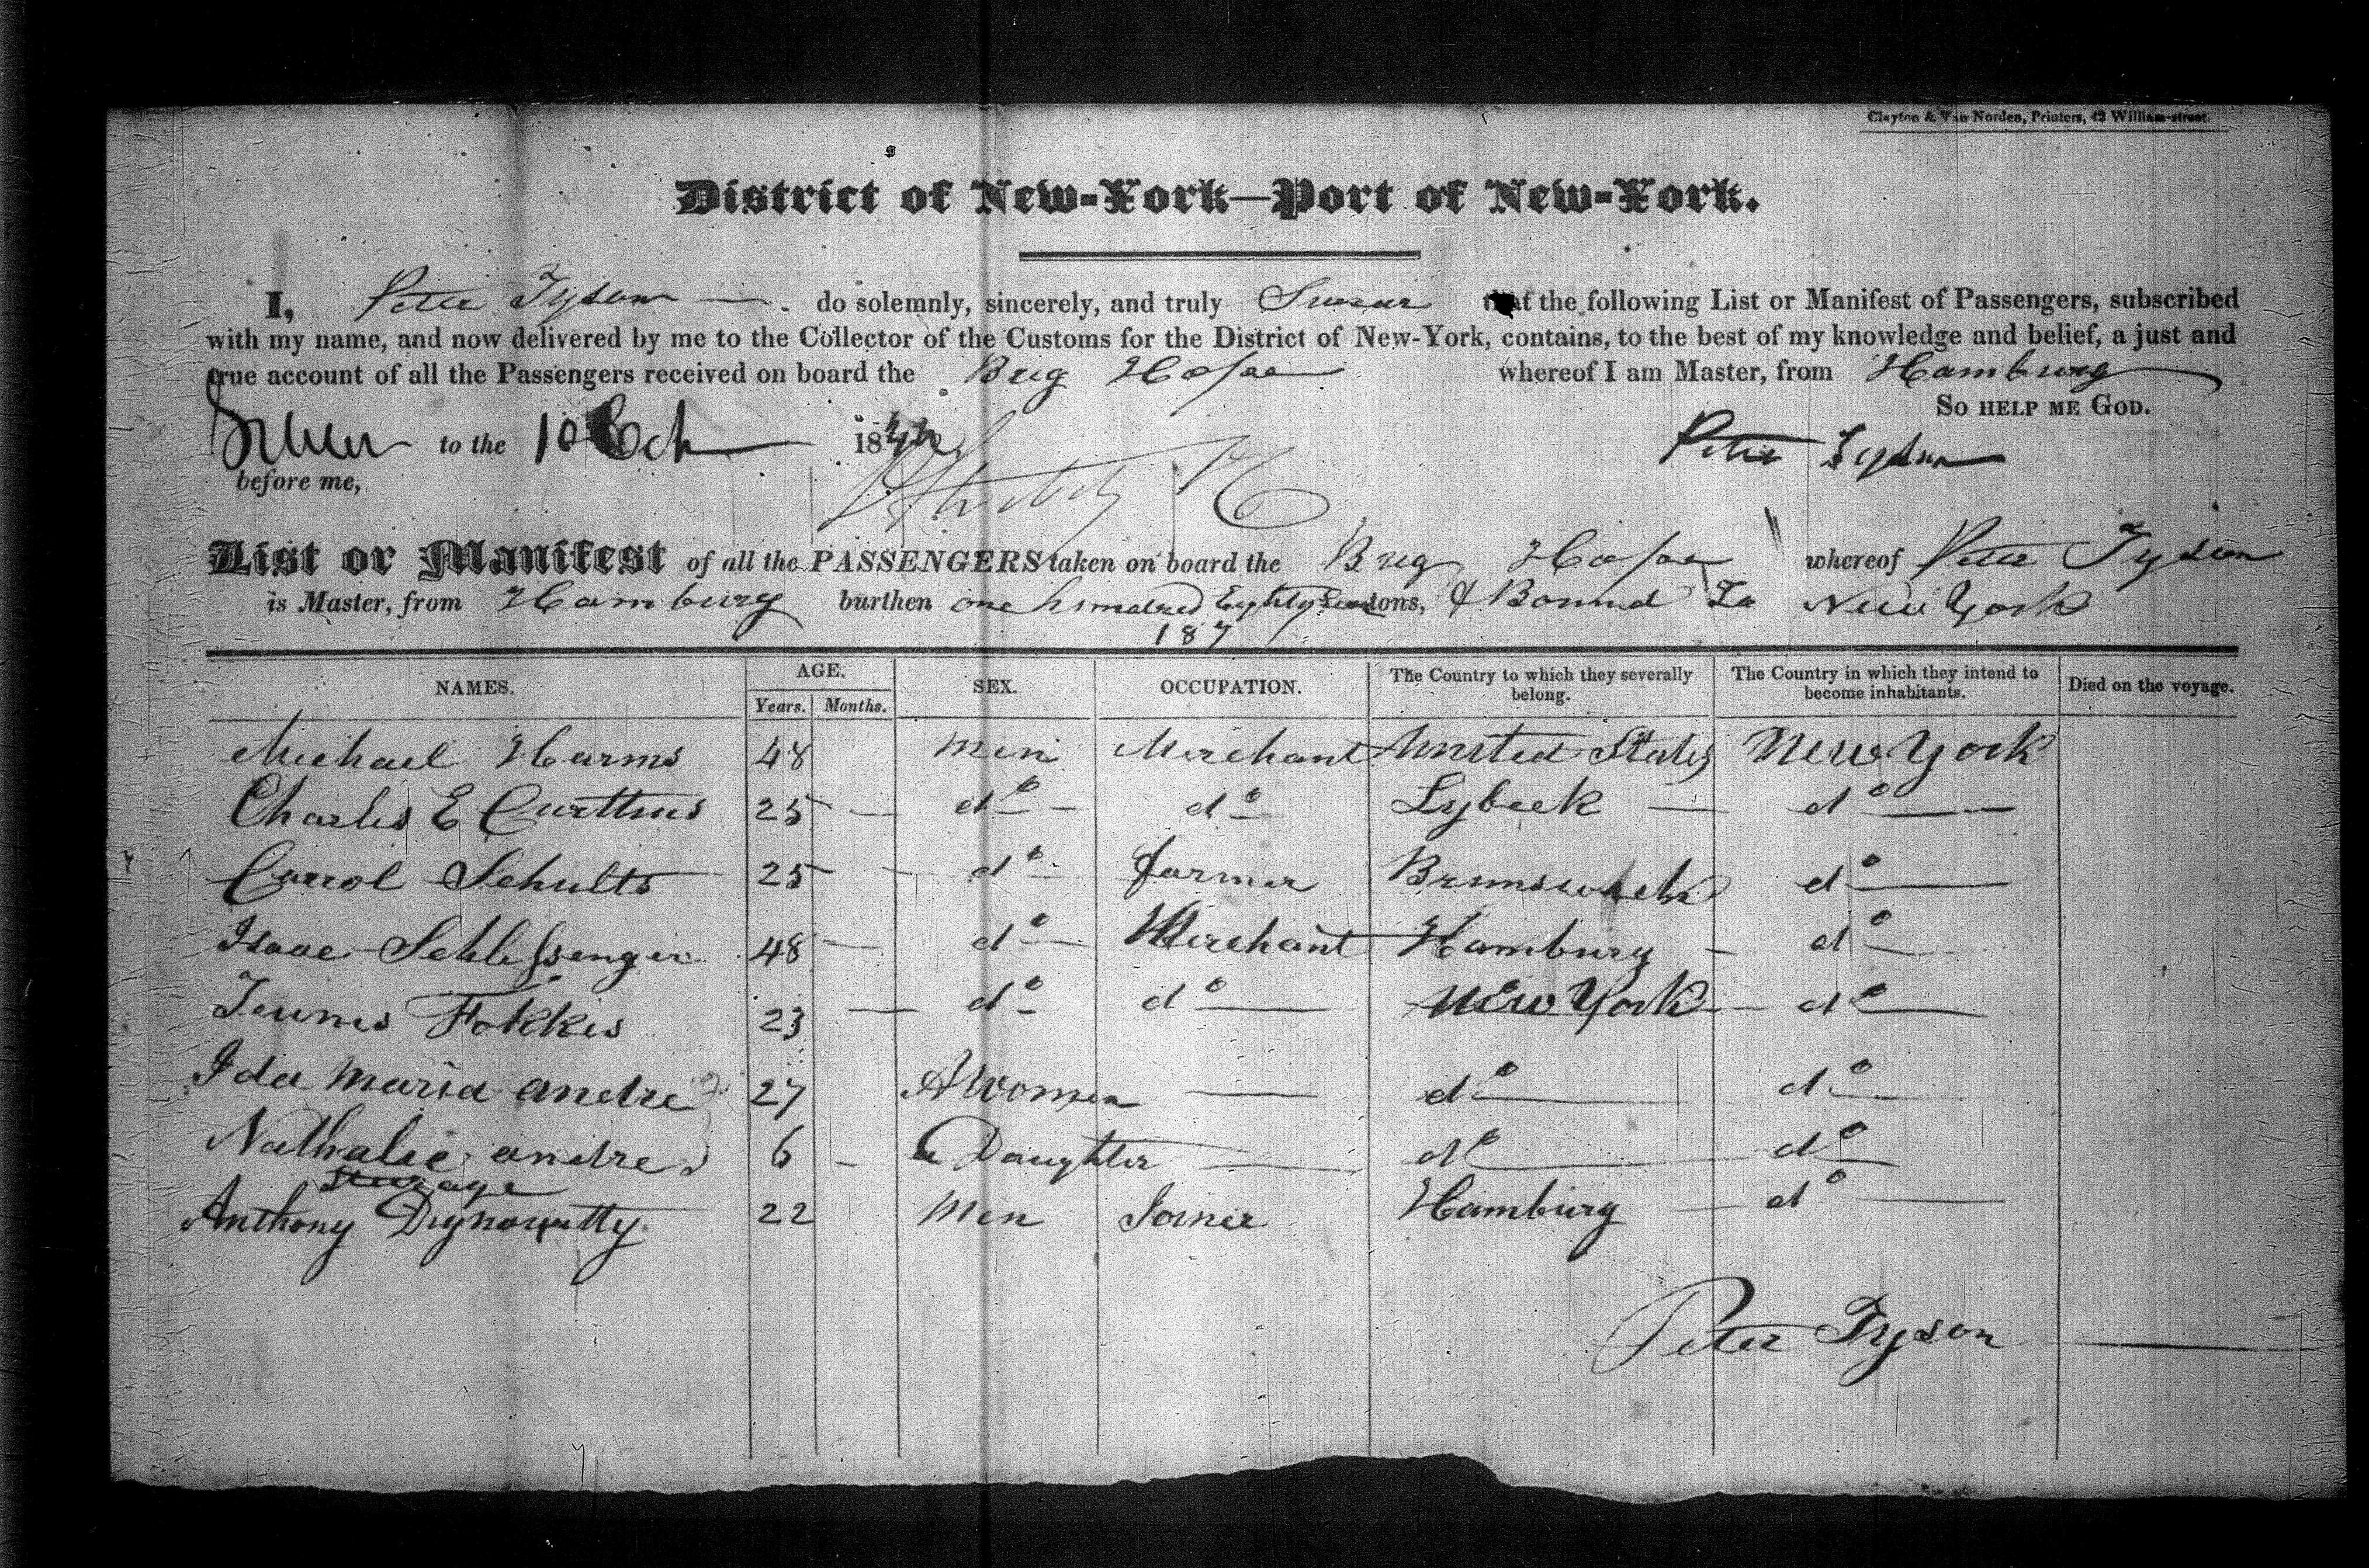 Clayton & Van Norden, Printers, 42 William-street.
District of New-York—Port of New-York.
I, Peter Tyson do solemnly, sincerely, and truly Swear that the following List or Manifest of Passengers, subscribed
with my name, and now delivered by me to the Collector of the Customs for the District of New-York, contains, to the best of my knowledge and belief, a just and
true account of all the Passengers received on board the Brig Hope whereof I am Master, from Hamburg
So help me God.
to the 10 Oct 18 Peter Tyson
before me,
List or Manifest of all the PASSENGERS taken on board the Brig Hope whereof Peter Tyson
is Master, from Hamburg burthen one hundred Eighty Seven tons, & Bound To New York
187
NAMES. AGE. SEX. OCCUPATION. The Country to which they severally belong. The Country in which they intend to become inhabitants. Died on the voyage.
Years. Months.
Michael Harms 48 Men Merchant United States New York
Charles E Curttius 25 — do — do Lybeek — do —
Carrol Schults 25 — do farmer Brunswick do —
Isaac Schlessenger 48 — do — Merchant Hamburg — do —
Teunes Fokkes 23 — do do — New York — do —
Ida Maria andre 27 A Women — do — do —
Nathalie andre 6 — a Daughter — do — do
Steerage
Anthony 22 Men Joiner Hamburg — do —
Peter Tyson